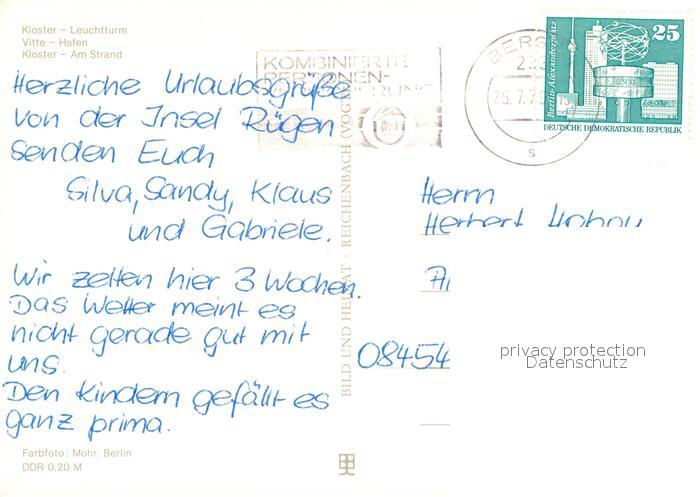 Kloster – Leuchtturm
Vitte – Hafen
Kloster – Am Strand
Herzliche Urlaubsgrüße
von der Insel Rügen
senden Euch
Silva, Sandy, Klaus
und Gabriele.
Wir zelten hier 3 Wochen.
Das Wetter meint es
nicht gerade gut mit
uns.
Den Kindern gefällt es
ganz prima.
Farbfoto: Mohr, Berlin
DDR 0,20 M
BILD UND HEIMAT · REICHENBACH (VOGTL
KOMBINIERTE
BERG
25.7.7
s
Berlin-Alexanderplatz
25
DEUTSCHE DEMOKRATISCHE REPUBLIK
Herrn
Herbert
08454
privacy protection
Datenschutz